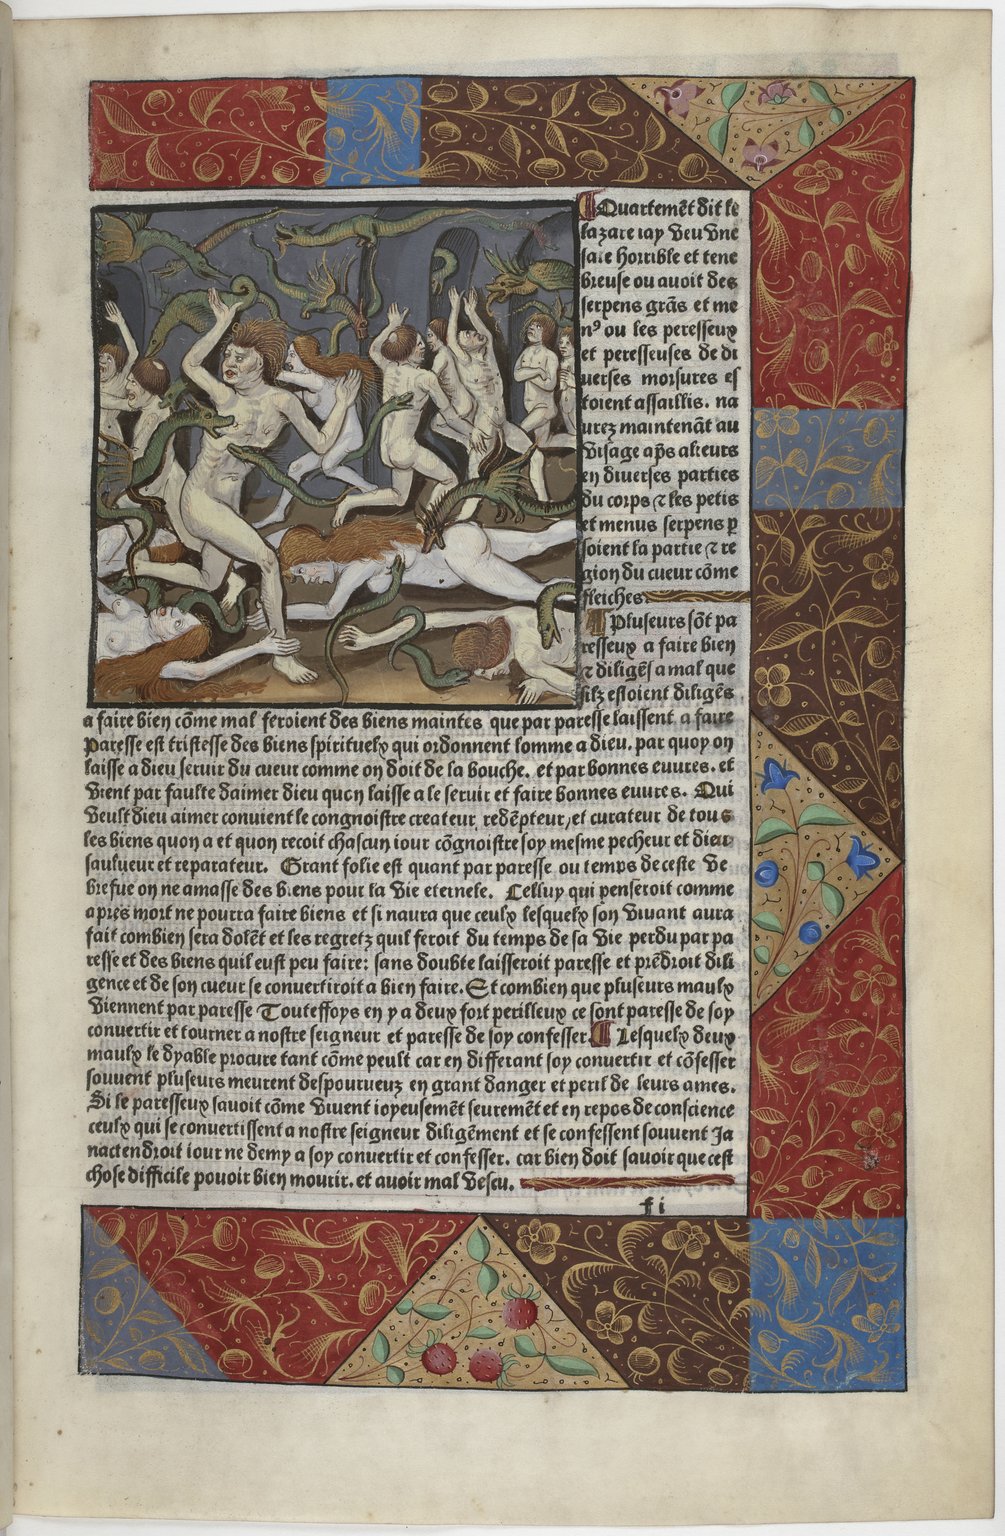 ¶Quartemēt dit le
lazare iay veu vne
sale horrible et tene
breuse ou auoit des
serpens grās et me
nꝰ ou les peresseux
et peresseuses de di
uerses morsures es
toient assaillis. na
urez maintenāt au
visage ap̄s alieurs
en diuerses parties
du corps ⁊ les petis
et menus serpens ꝑ
soient la partie ⁊ re
gion du cueur cōme
fleiches.
¶Pluseurs sōt pa
resseux a faire bien
⁊ diligēs a mal que
silz estoient diligēs
a faire bien cōme mal feroient des biens maintes que par paresse laissent a faire
Paresse est tristesse des biens spirituelx qui ordonnent lomme a dieu. par quoy on
laisse a dieu seruir du cueur comme on doit de la bouche. et par bonnes euures. et
vient par faulte daimer dieu quon laisse a le seruir et faire bonnes euures. Qui
veult dieu aimer conuient le congnoistre createur, redēpteur, et curateur de tous
les biens quon a et quon recoit chascun iour cōgnoistre soy mesme pecheur et dieu
saulueur et reparateur. Grant folie est quant par paresse ou temps de ceste ve
briefue on ne amasse des biens pour la vie eternele. Celluy qui penseroit comme
apres mort ne pourra faire biens et si naura que ceulx lesquelx son viuant aura
fait combien sera dolēt et les regretz quil feroit du temps de sa vie perdu par pa
resse et des biens quil eust peu faire: sans doubte laisseroit paresse et prēdroit dili
gence et de son cueur se conuertiroit a bien faire. Et combien que pluseurs maulx
viennent par paresse Touteffoys en y a deux fort perilleux ce sont paresse de soy
conuertir et tourner a nostre seigneur et paresse de soy confesser ¶ Lesquelx deux
maulx le dyable procure tant cōme peult car en differant soy conuertir et cōfesser
souuent pluseurs meurent despourueuz en grant danger et peril de leurs ames.
Si le paresseux sauoit cōme viuent ioyeusemēt seuremēt et en repos de conscience
ceulx qui se conuertissent a nostre seigneur diligēment et se confessent souuent Ja
nactendroit iour ne demy a soy conuertir et confesser. car bien doit sauoir que cest
chose difficile pouoir bien mourir. et auoir mal vescu.
f i